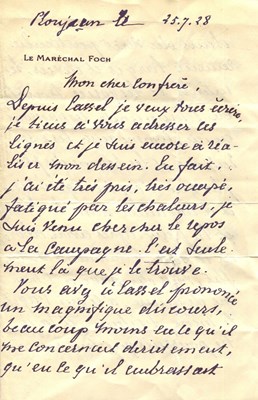 Ploujean 25.7.28
LE MARÉCHAL FOCH
Mon cher confrère,
Depuis Cassel je veux vous écrire,
je tiens à vous adresser ces
lignes et je suis encore à réa-
liser mon dessein. En fait,
j'ai été très pris, très occupé,
fatigué par les chaleurs, je
suis venu chercher le repos
à la campagne. C'est seule
ment là que je le trouve.
Vous avez à Cassel prononcé
un magnifique discours,
beaucoup moins en ce qu'il
me concernait directement,
qu'en ce qu'il embrassait